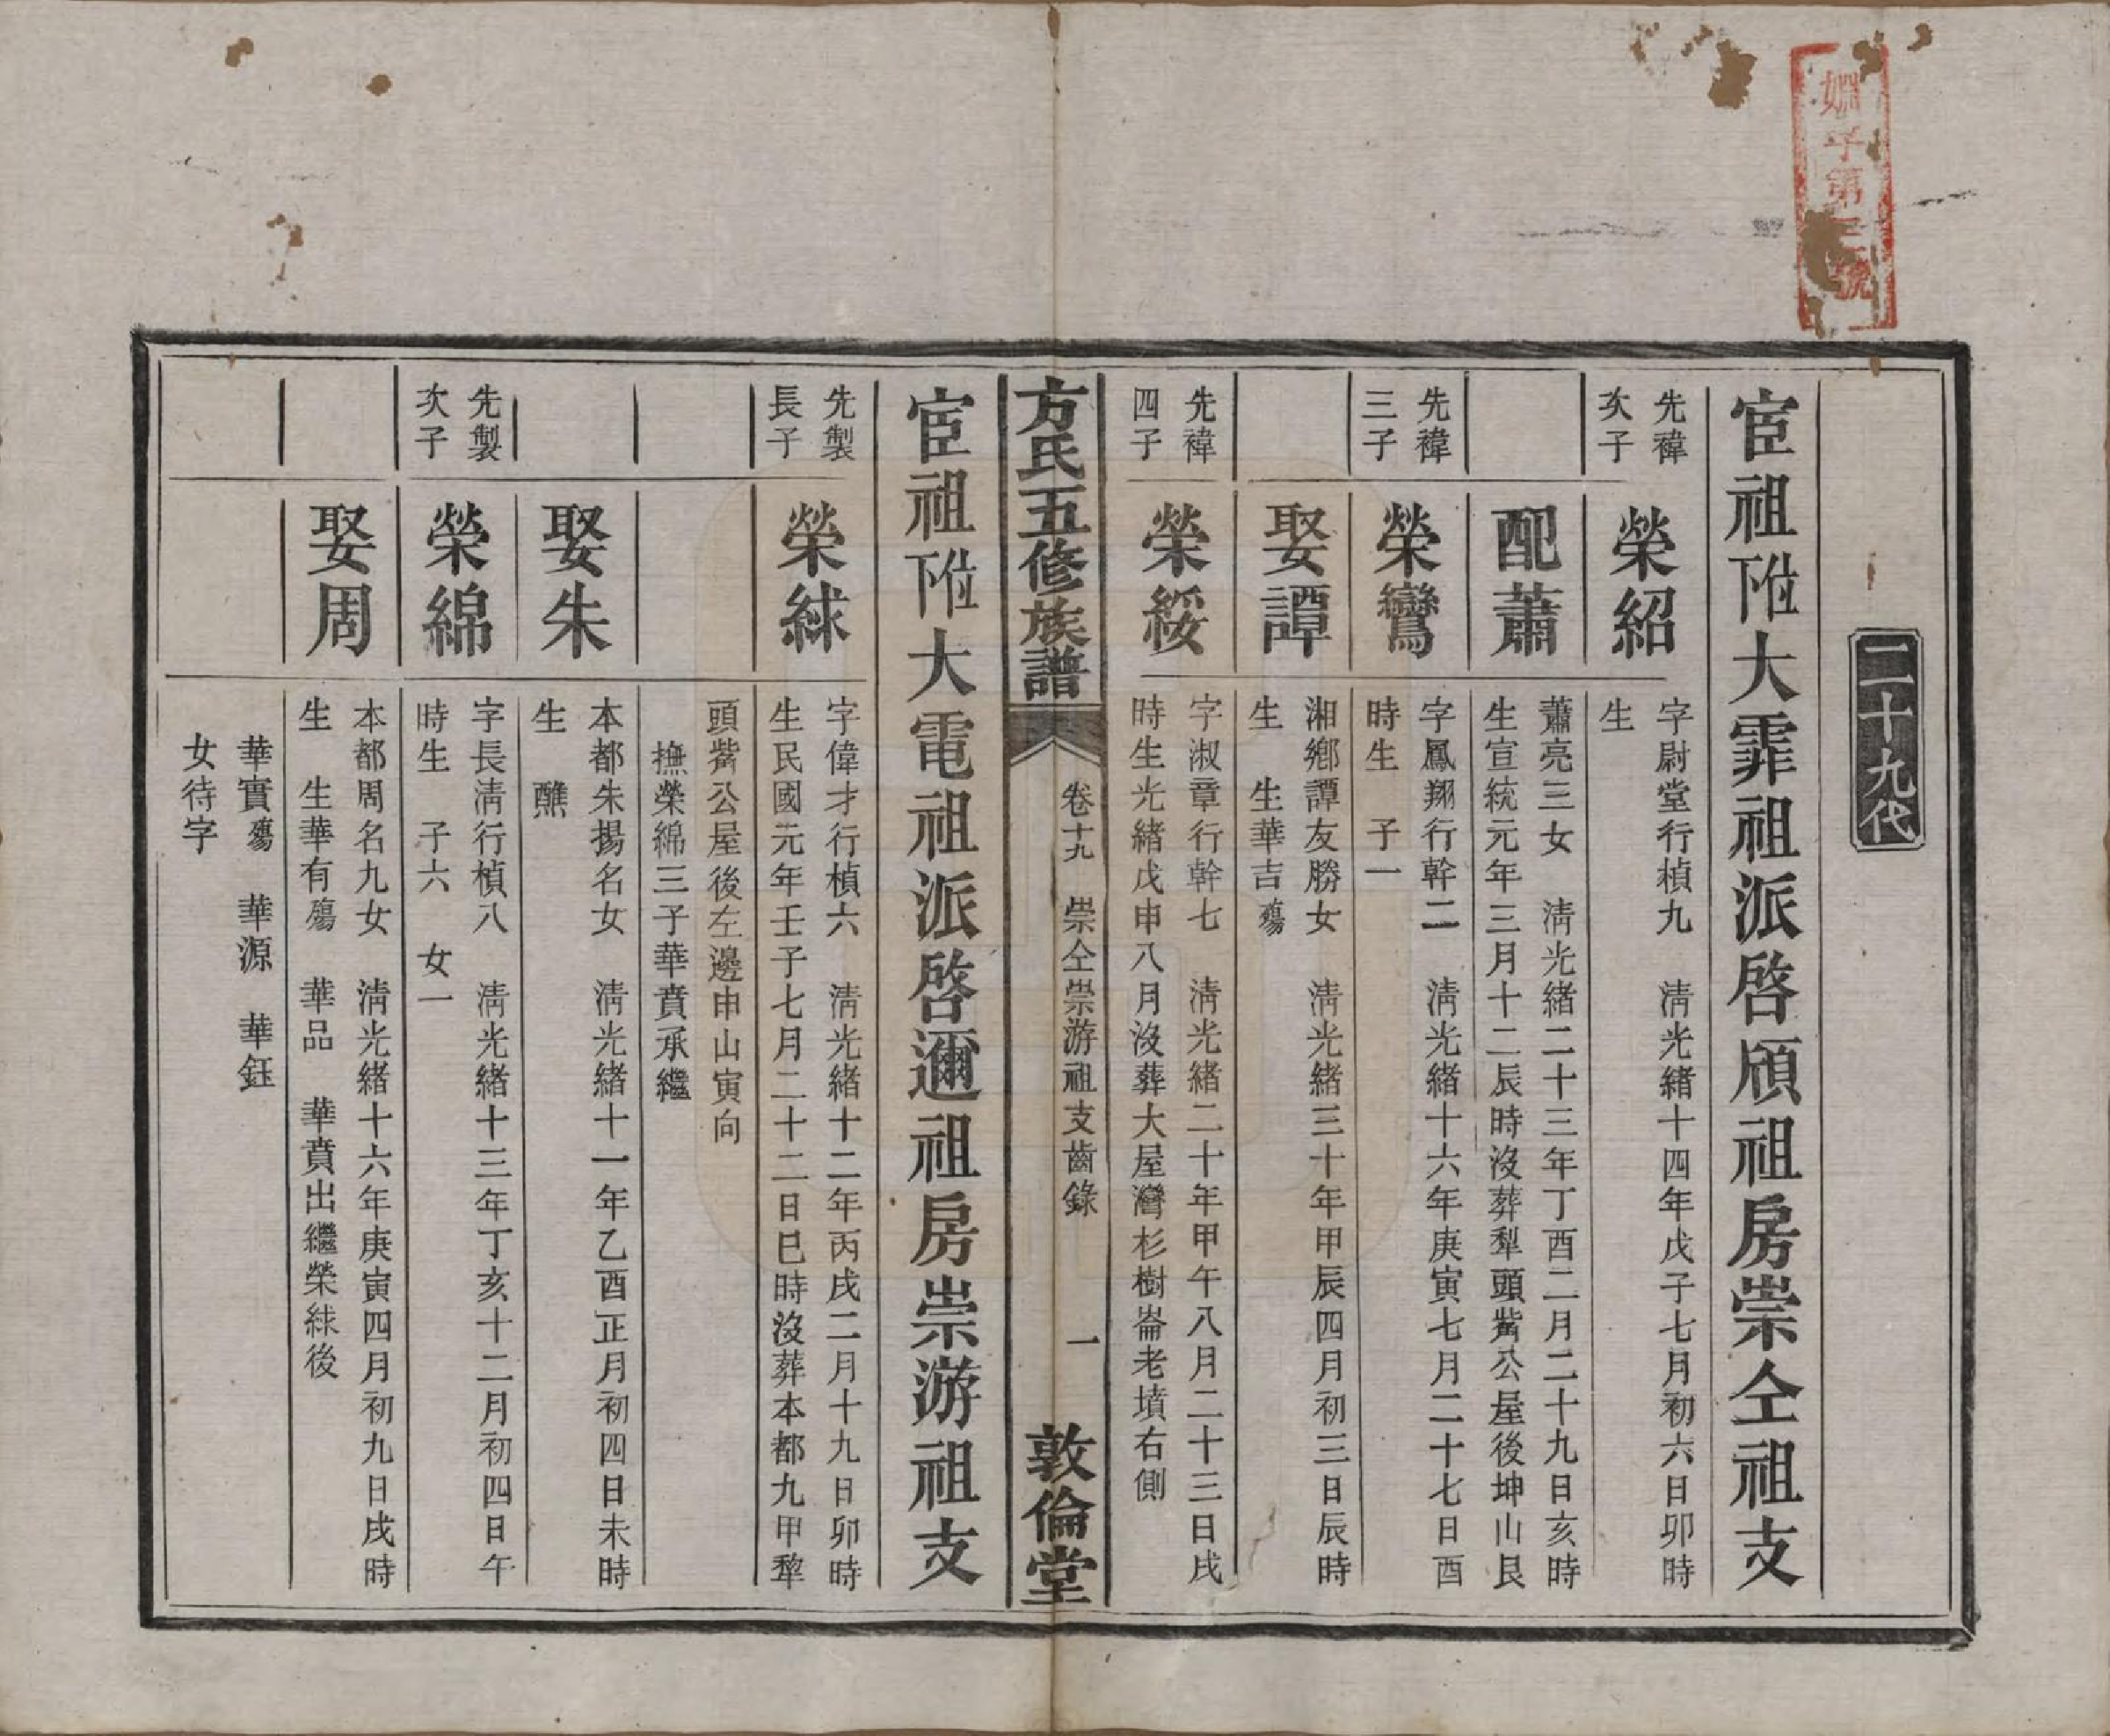 二十九代
宦祖附下大霏祖派啓頎祖房崇仝祖支
先褘
次子
榮紹
字尉堂行楨九　清光緒十四年戊子七月初六日卯時
生
配蕭
蕭亮三女　清光緒二十三年丁酉二月二十九日亥時
生宣統元年三月十二辰時沒葬犁頭觜公屋後坤山艮
先褘
三子
榮鸞
字鳳翔行幹二　清光緒十六年庚寅七月二十七日酉
時生　子一
娶譚
湘鄉譚友勝女　清光緒三十年甲辰四月初三日辰時
生　生華吉殤
先褘
四子
榮綏
字淑章行幹七　清光緒二十年甲午八月二十三日戌
時生光緒戊申八月沒葬大屋灣杉樹崙老墳右側
方氏五修族譜
卷十九　崇仝崇游祖支齒錄
一
敦倫堂
宦祖附下大電祖派啓邇祖房崇游祖支
先製
長子
榮絿
字偉才行楨六　清光緒十二年丙戌二月十九日卯時
生民國元年壬子七月二十二日巳時沒葬本都九甲犂
頭觜公屋後左邊申山寅向
撫榮綿三子華賁承繼
娶朱
本都朱揚名女　清光緒十一年乙酉正月初四日未時
生　醮
先製
次子
榮綿
字長清行楨八　清光緒十三年丁亥十二月初四日午
時生　子六　女一
娶周
本都周名九女　清光緒十六年庚寅四月初九日戌時
生　生華有殤　華品　華賁出繼榮絿後
華實殤　華源　華鈺
女待字